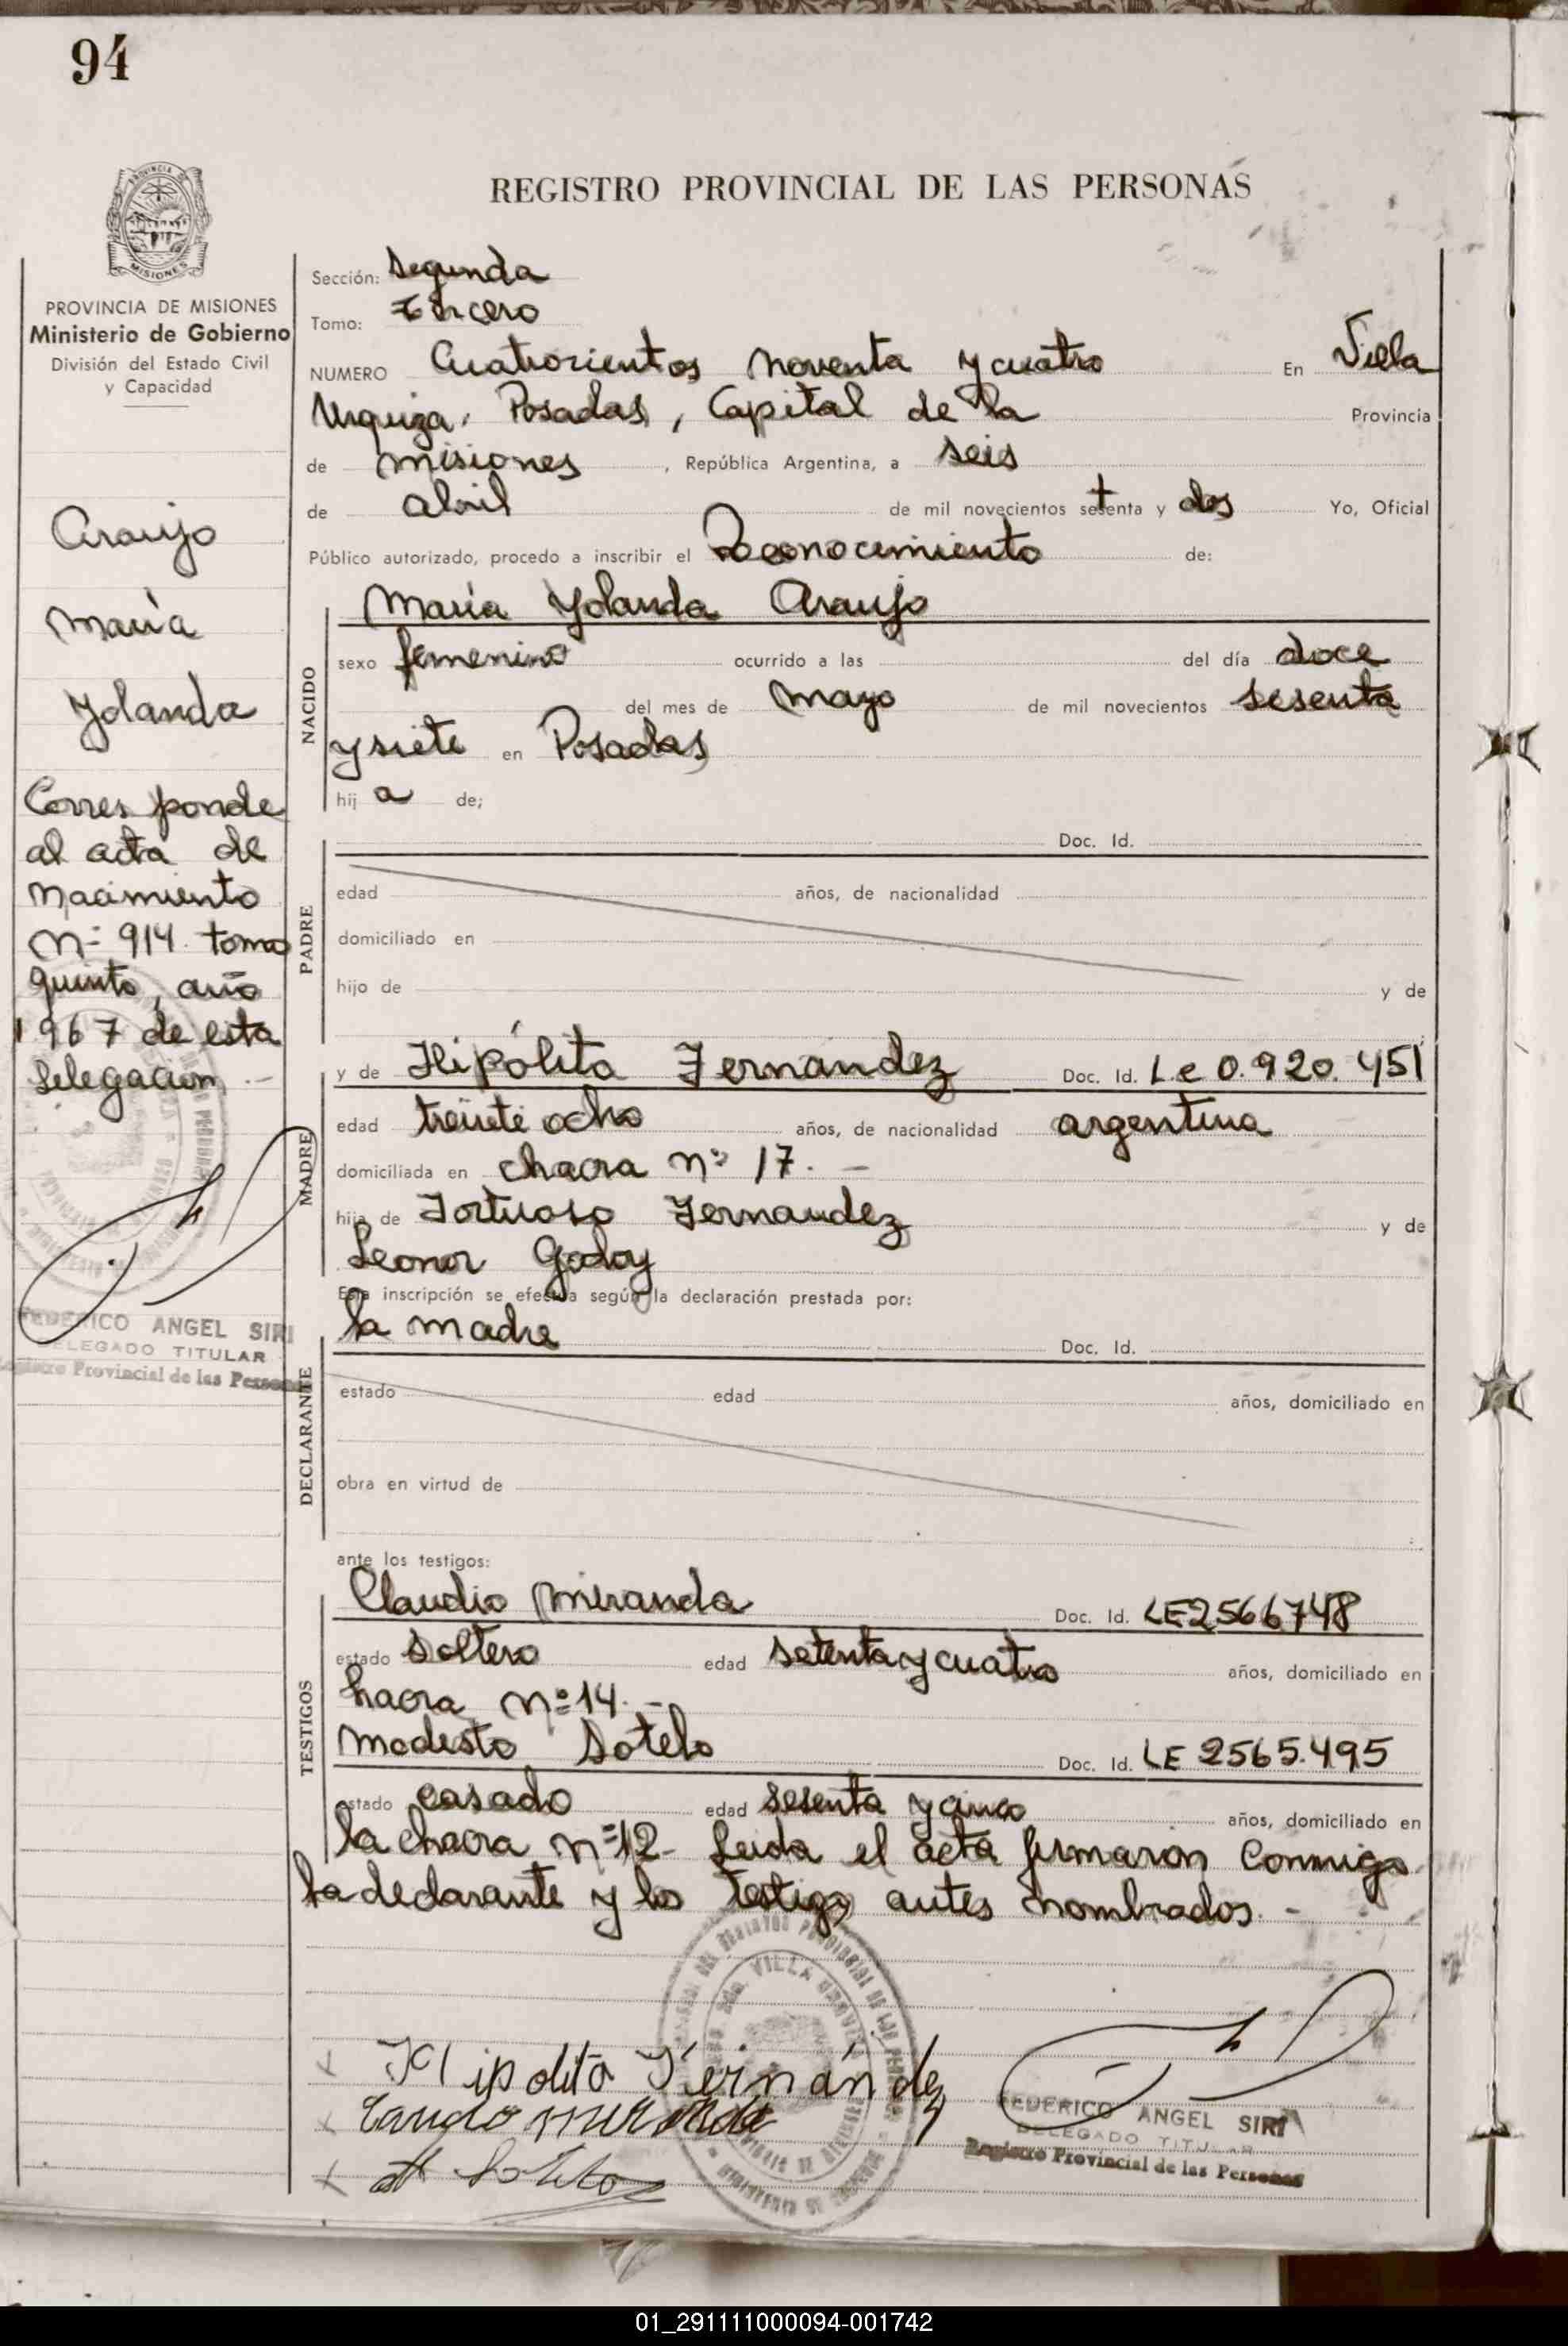 94
REGISTRO PROVINCIAL DE LAS PERSONAS
MISIONES
PROVINCIA DE MISIONES
Ministerio de Gobierno
División del Estado Civil
y Capacidad
Araujo
María
Yolanda
Corresponde
al acta de
Nacimiento
Nº 914 tomo
quinto, año
1967 de esta
Delegación.-
FEDERICO ANGEL SIRI
DELEGADO TITULAR
Registro Provincial de las Personas
Sección: Segunda
Tomo: Tercero
NUMERO Cuatrocientos noventa y cuatro En Villa
Urquiza, Posadas, Capital de la Provincia
de Misiones, República Argentina, a seis
de abril de mil novecientos setenta y dos Yo, Oficial
Público autorizado, procedo a inscribir el Reconocimiento de:
NACIDO
María Yolanda Araujo
sexo femenino ocurrido a las del día doce
del mes de Mayo de mil novecientos sesenta
y siete en Posadas
hij a de;
PADRE
Doc. Id.
edad años, de nacionalidad
domiciliado en
hijo de y de
MADRE
y de Hipólita Fernández Doc. Id. L.e 0.920.451
edad treinte ocho años, de nacionalidad argentina
domiciliada en chacra nº 17. -
hija de Fortuoso Fernandez y de
Leonor Godoy
Esta inscripción se efectúa según la declaración prestada por:
DECLARANTE
la madre Doc. Id.
estado edad años, domiciliado en
obra en virtud de
ante los testigos:
TESTIGOS
Claudio Miranda Doc. Id. LE2566748
estado soltero edad setenta y cuatro años, domiciliado en
hacra nº 14. -
Modesto Sotelo Doc. Id. LE 2565.495
estado casado edad sesenta y cinco años, domiciliado en
la chacra nº 12- Leida el acta firmaron conmigo
la declarante y los testigos antes nombrados. -
VILLA URQUIZA
Hipolita Fernández
Caudio Miranda
M Sotelo
FEDERICO ANGEL SIRI
DELEGADO TITULAR
Registro Provincial de las Personas
01_291111000094-001742